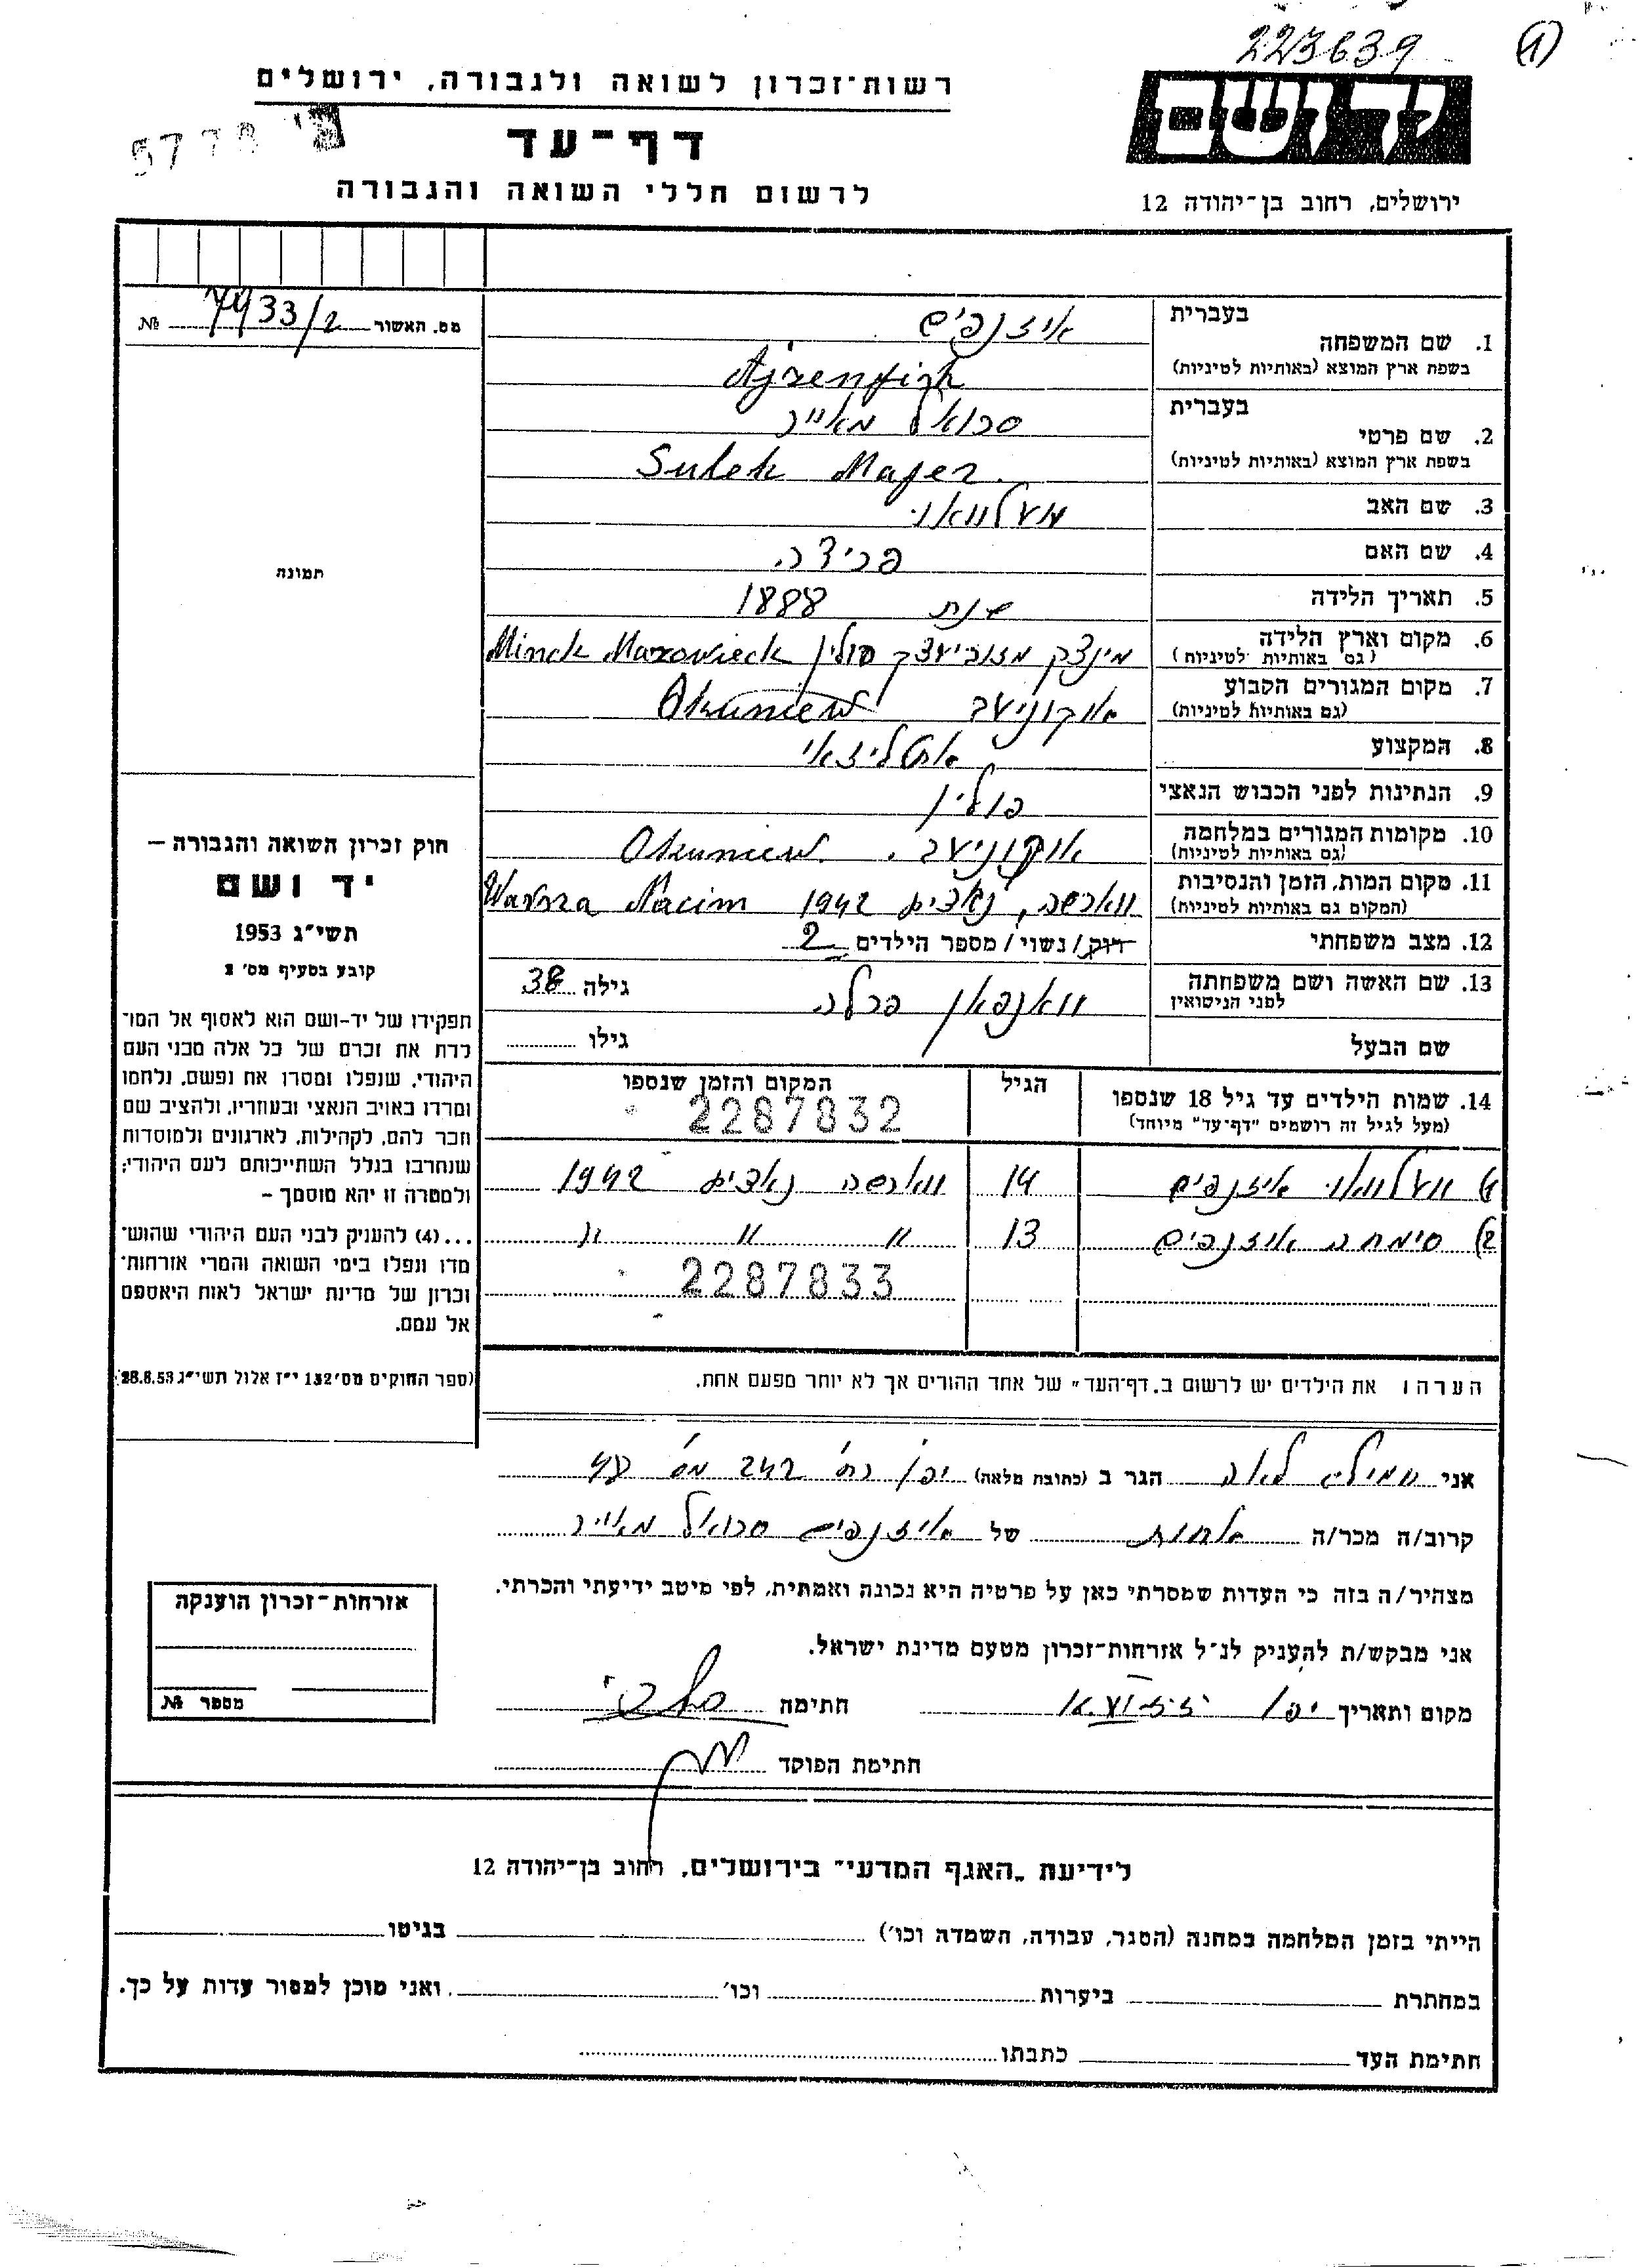 223639
(1)
רשות־זכרון לשואה ולגבורה, ירושלים
5778
דף־עד
לרשום חללי השואה והגבורה
יד ושם
ירושלים, רחוב בן־יהודה 12
מס. האשור 7433/2 №
תמונה
1. שם המשפחה בעברית איזנפיש
בשפת ארץ המוצא (באותיות לטיניות) Ajzenfish
2. שם פרטי בעברית סרואל מאייר
בשפת ארץ המוצא (באותיות לטיניות) Sulek Majer
3. שם האב
4. שם האם פרידה
5. תאריך הלידה שנת 1888
6. מקום וארץ הלידה (גם באותיות לטיניות) מינצק מזוביעצק פולין Minck Mazowieck
7. מקום המגורים הקבוע (גם באותיות לטיניות) אוקוניעב Okuniew
8. המקצוע אטליזאי
9. הנתינות לפני הכבוש הנאצי פולין
10. מקומות המגורים במלחמה (גם באותיות לטיניות) אוקוניעב. Okuniew
11. מקום המות, הזמן והנסיבות (המקום גם באותיות לטיניות) ווארשה, נאצים 1942 Warsza Nacim
12. מצב משפחתי רווק/נשוי/מספר הילדים 2
13. שם האשה ושם משפחתה לפני הנישואין פרלה גילה 38
שם הבעל גילו
14. שמות הילדים עד גיל 18 שנספו הגיל המקום והזמן שנספו
(מעל לגיל זה רושמים "דף־עד" מיוחד) 2287832
1) וועלוואוי איזנפיש 14 ווארשה נאצים 1942
2) סימחה איזנפיש 13 " " "
2287833
הערה: את הילדים יש לרשום ב„דף־העד" של אחד ההורים אך לא יותר מפעם אחת.
חוק זכרון השואה והגבורה –
יד ושם
תשי"ג 1953
קובע בסעיף מס' 2
תפקידו של יד-ושם הוא לאסוף אל המו־
לדת את זכרם של כל אלה מבני העם
היהודי, שנפלו ומסרו את נפשם, נלחמו
ומרדו באויב הנאצי ובעוזריו, ולהציב שם
וזכר להם, לקהילות, לארגונים ולמוסדות
שנחרבו בגלל השתייכותם לעם היהודי;
ולמטרה זו יהא מוסמך –
...(4) להעניק לבני העם היהודי שהוש־
מדו ונפלו בימי השואה והמרי אזרחות־
זכרון של מדינת ישראל לאות היאספם
אל עמם.
(ספר החוקים מס' 132 י"ז אלול תשי"ג 28.8.53)
אני לאה הגר ב (כתובת מלאה) יפו רח' 242 מס'
קרוב/ה מכר/ה אחות של איזנפיש סרואל מאייר
מצהיר/ה בזה כי העדות שמסרתי כאן על פרטיה היא נכונה ואמתית, לפי מיטב ידיעתי והכרתי.
אני מבקש/ת להעניק לנ"ל אזרחות־זכרון מטעם מדינת ישראל.
מקום ותאריך יפו חתימה
חתימת הפוקד
אזרחות־זכרון הוענקה
מספר №
לידיעת „האגף המדעי" בירושלים, רחוב בן־יהודה 12
הייתי בזמן המלחמה במחנה (הסגר, עבודה, השמדה וכו') בגיטו
במחתרת ביערות וכו' ואני מוכן למסור עדות על כך.
חתימת העד כתבתו